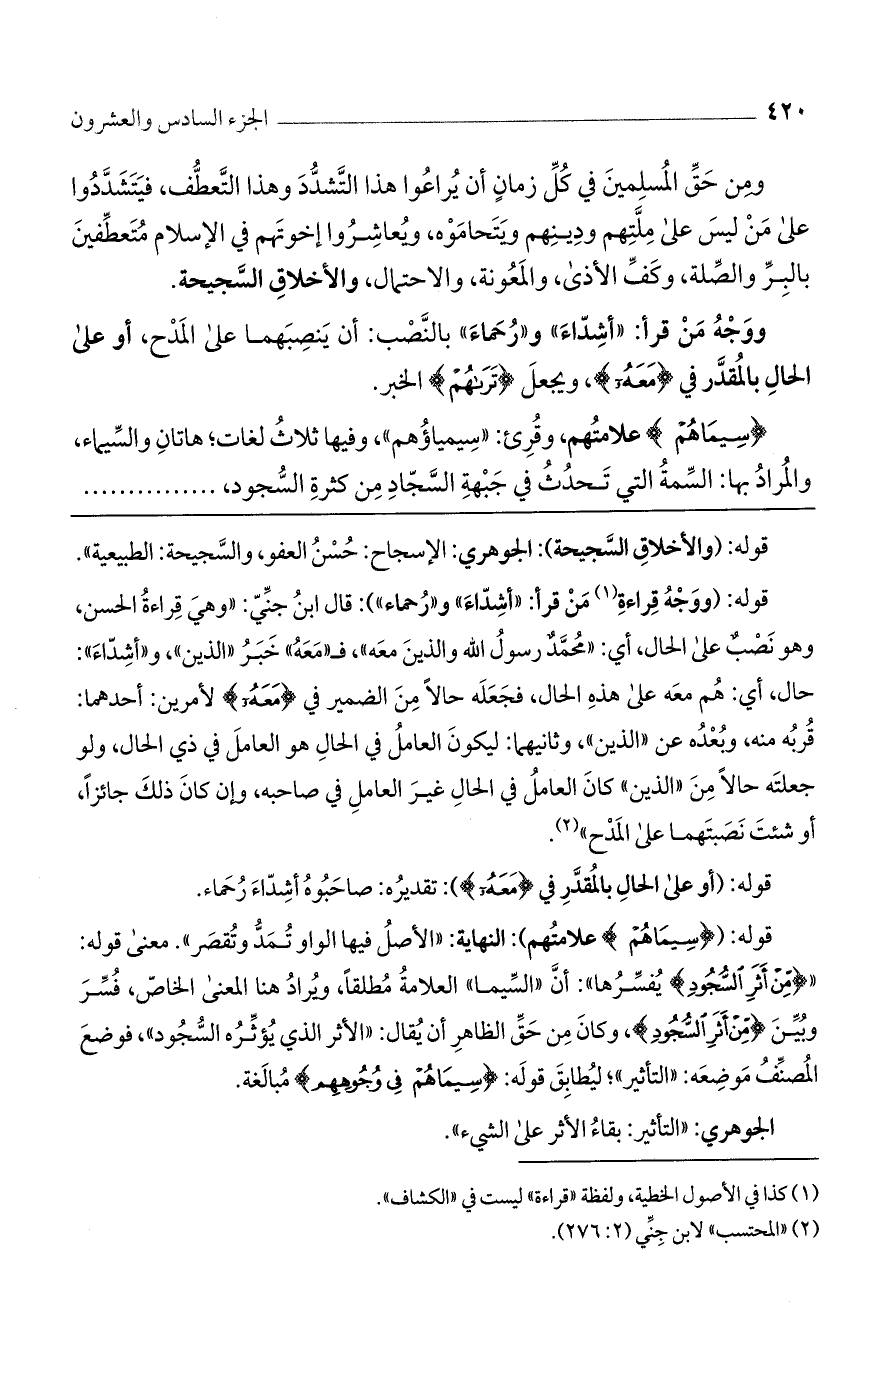 ٤٢٠ ــــــــــــــــــــــــــ الجزء السادس والعشرون
ومِن حَقِّ المُسلِمينَ في كُلِّ زمانٍ أن يُراعُوا هذا التَّشدُّدَ وهذا التَّعطُّف، فيَتَشَدَّدُوا
على مَنْ ليسَ على مِلَّتِهم ودِينِهم ويَتَحامَوْه، ويُعاشِرُوا إخوتَهم في الإسلام مُتَعطِّفينَ
بالبِرِّ والصِّلة، وكَفِّ الأذى، والمَعُونة، والاحتمال، والأخلاقِ السَّجيحة.
ووَجْهُ مَنْ قرأ: «أشِدّاءَ» و«رُحَماءَ» بالنَّصْب: أن يَنصِبَهما على المَدْح، أو على
الحالِ بالمُقدَّر في ﴿مَعَهُۥٓ﴾، ويجعلَ ﴿تَرَىٰهُمْ﴾ الخبر.
﴿سِيمَاهُمْ﴾ علامتُهم، وقُرِئ: «سِيمياؤُهم»، وفيها ثلاثُ لغات؛ هاتانِ والسِّيماء،
والمُرادُ بها: السِّمةُ التي تَحدُثُ في جَبْهةِ السَّجّادِ مِن كثرةِ السُّجود، ...............
قوله: (والأخلاقِ السَّجيحة): الجوهري: الإسجاح: حُسْنُ العفو، والسَّجيحة: الطبيعية».
قوله: (ووَجْهُ قِراءةِ(١) مَنْ قرأ: «أشِدّاءَ» و«رُحماء»): قال ابنُ جنِّيّ: «وهيَ قِراءةُ الحسن،
وهو نَصْبٌ على الحال، أي: «مُحمَّدٌ رسولُ الله والذينَ معَه»، فـ«مَعَهُ» خَبَرُ «الذين»، و«أشِدّاءَ»:
حال، أي: هُم معَه على هذهِ الحال، فجَعَلَه حالاً مِنَ الضمير في ﴿مَعَهُۥٓ﴾ لأمرين: أحدهما:
قُربُه منه، وبُعْدُه عن «الذين»، وثانيهما: ليكونَ العاملُ في الحالِ هو العاملَ في ذي الحال، ولو
جعلتَه حالاً مِنَ «الذين» كانَ العاملُ في الحالِ غيرَ العاملِ في صاحبه، وإن كانَ ذلكَ جائزاً،
أو شئتَ نَصَبتَهما على المَدْح»(٢).
قوله: (أو على الحالِ بالمُقدَّرِ في ﴿مَعَهُۥٓ﴾): تقديرُه: صاحَبُوهُ أشِدّاءَ رُحَماء.
قوله: (﴿سِيمَاهُمْ﴾ علامتُهم): النهاية: «الأصلُ فيها الواو تُمَدُّ وتُقصَر». معنى قوله:
«﴿مِّنْ أَثَرِ ٱلسُّجُودِ﴾ يُفسِّرُها»: أنَّ «السِّيما» العلامةُ مُطلقاً، ويُرادُ هنا المعنى الخاصّ، فُسِّرَ
وبُيِّنَ ﴿مِّنْ أَثَرِ ٱلسُّجُودِ﴾، وكانَ مِن حَقِّ الظاهرِ أن يُقال: «الأثر الذي يُؤثِّرُه السُّجود»، فوضعَ
المُصنِّفُ مَوضِعَه: «التأثير»؛ ليُطابِقَ قولَه: ﴿سِيمَاهُمْ فِي وُجُوهِهِم﴾ مُبالَغة.
الجوهري: «التأثير: بقاءُ الأثر على الشيء».
(١) كذا في الأصول الخطية، ولفظة «قراءة» ليست في «الكشاف».
(٢) «المحتسب» لابن جِنِّي (٢: ٢٧٦).